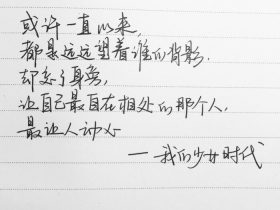 或许一直以来,
都是远远望着谁的背影.
却忘了身旁,
让自己最自在相处的那个人,
最让人动心
—我的少女时代